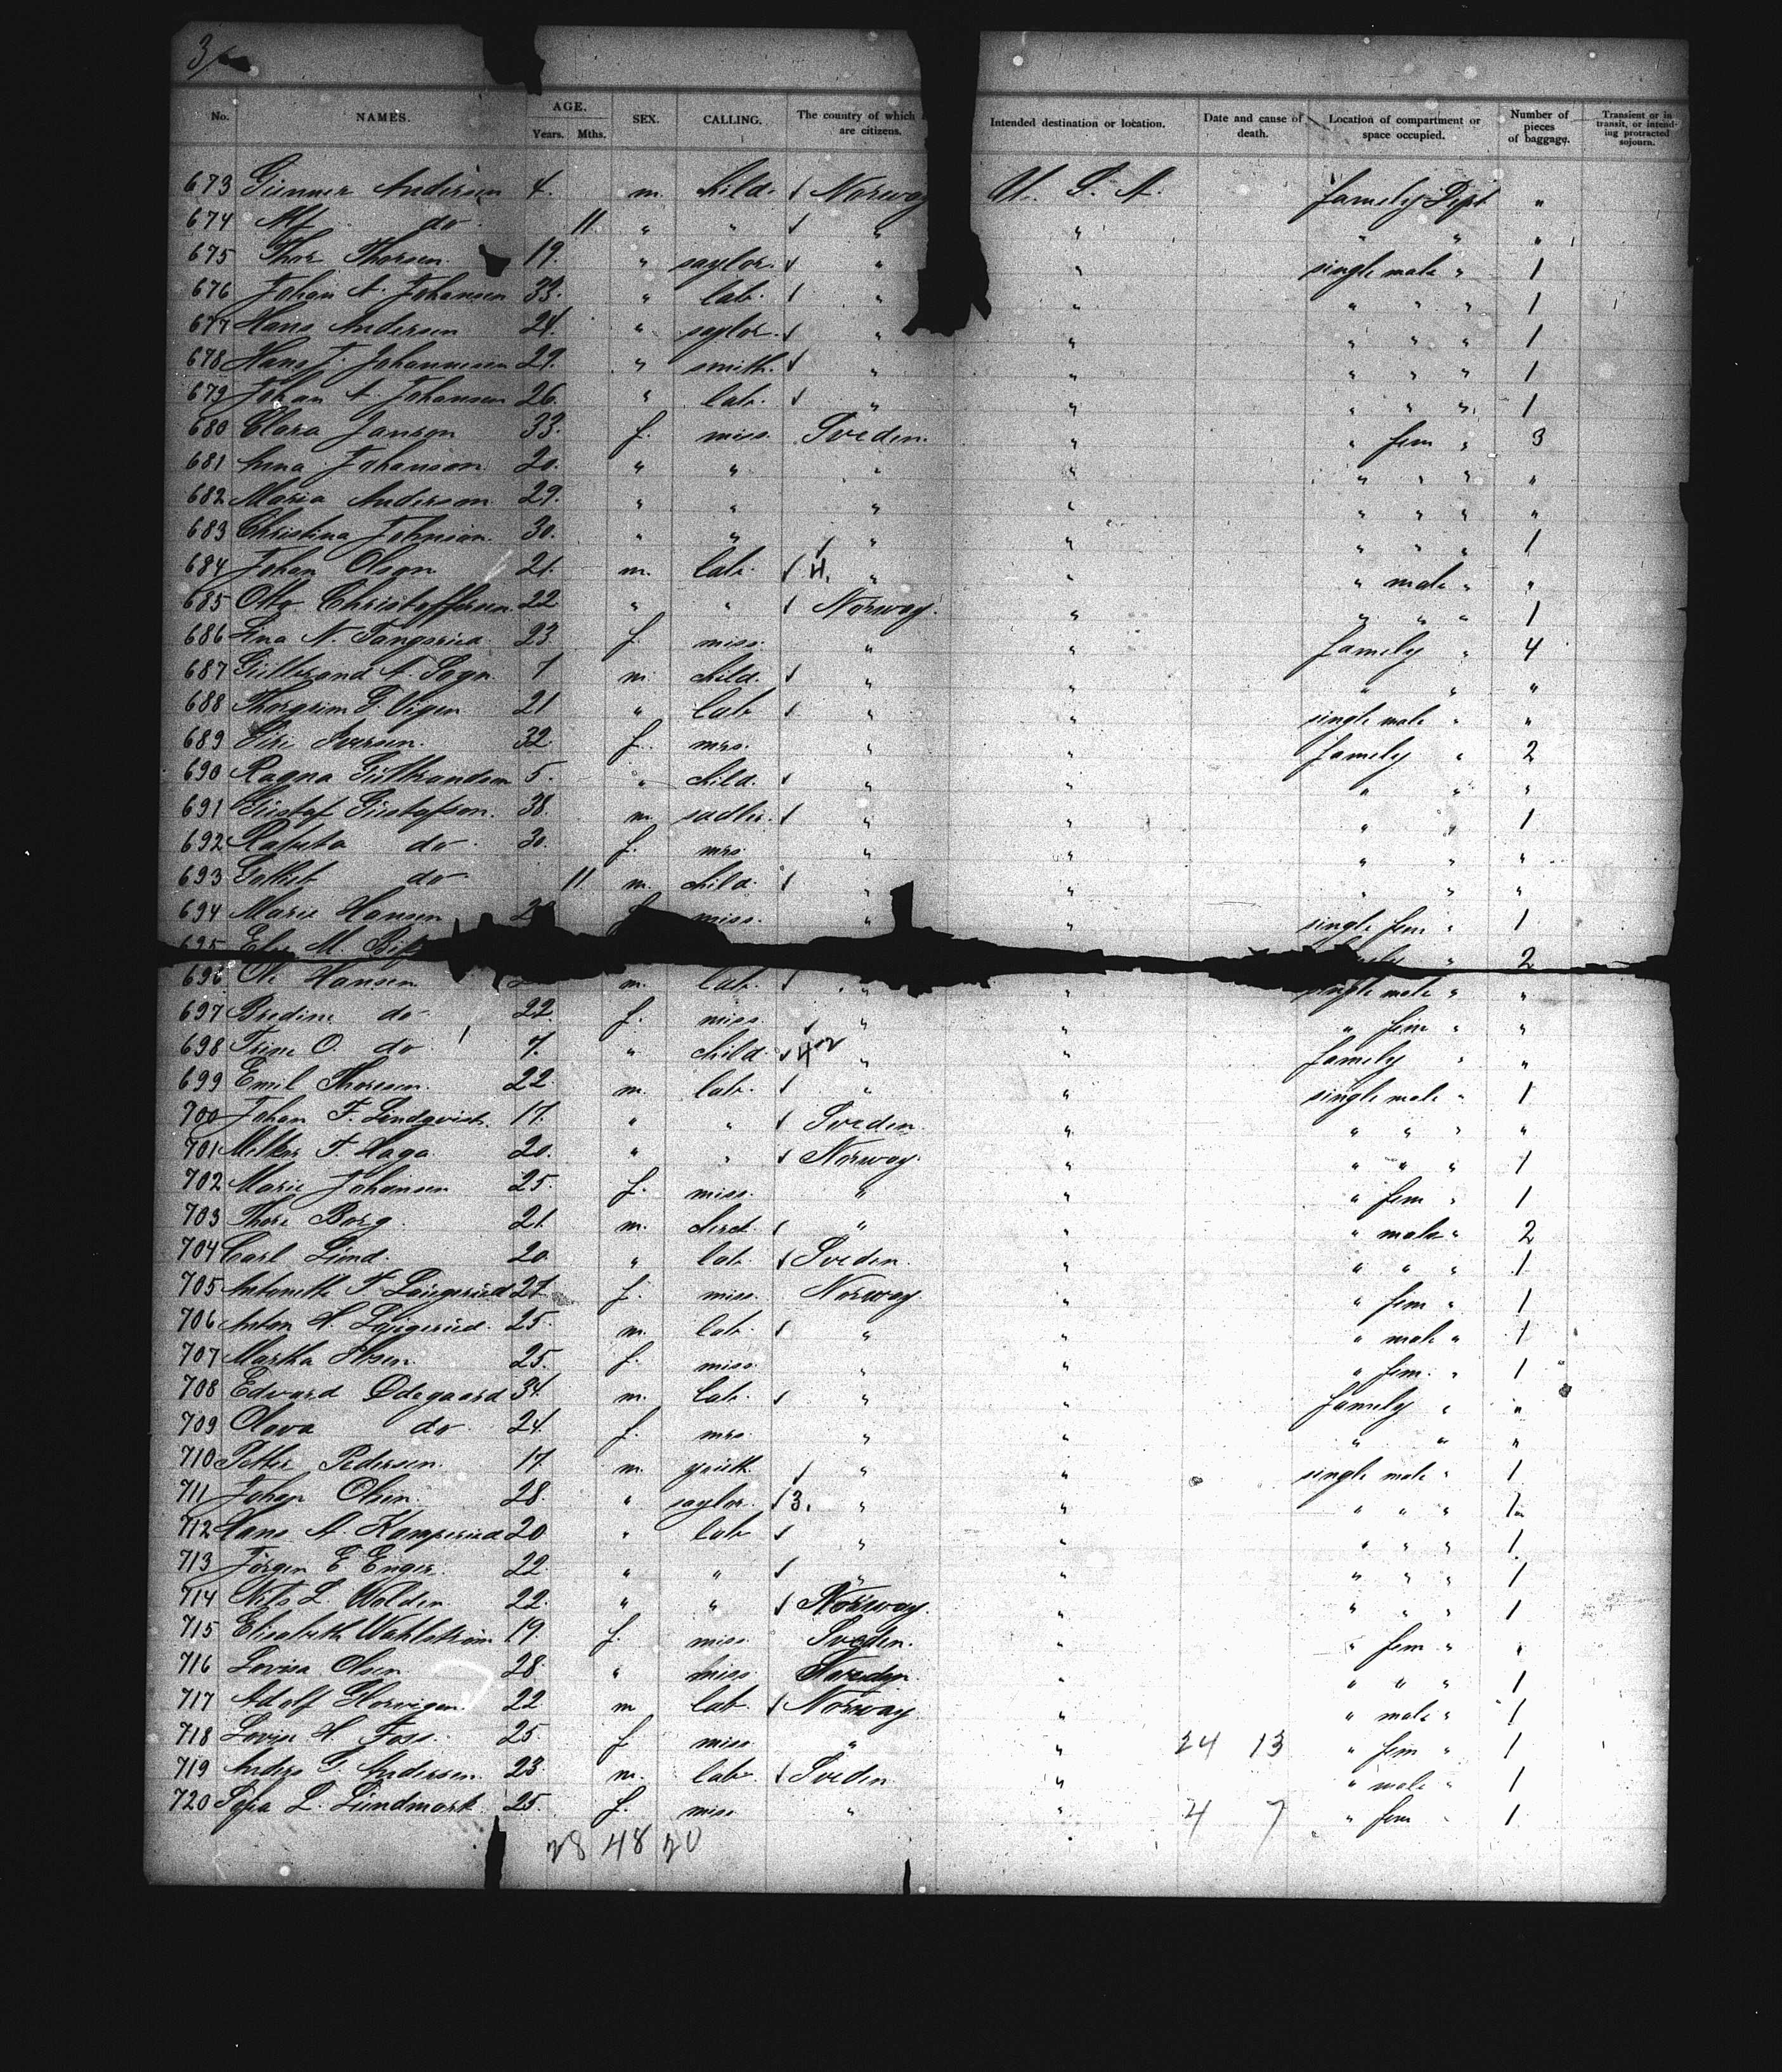 3
No. NAMES. AGE. Years. Mths. SEX. CALLING. The country of which are citizens. Intended destination or location. Date and cause of death. Location of compartment or space occupied. Number of pieces of baggage. Transient or in transit, or intending protracted sojourn.
673 Gunner Andersen 4. m. child. Norway U. S. A. family Dept "
674 Alf do 11 " " " " " " "
675 Thor Thorsen 19. " saylor. " " single male " 1
676 Johan A. Johansen 33. " lab. " " " " " 1
677 Hans Andersen 24. " saylor. " " " " " 1
678 Hans J. Johannesen 29. " smith. " " " " " 1
679 Johan A. Johansen 26. " lab. " " " " " 1
680 Clara Janson 33. f. miss. Sveden. " " fem " 3
681 Anna Johanson 20. " " " " " " " "
682 Maria Anderson 29. " " " " " " " "
683 Christina Johnson. 30. " " " " " " " 1
684 Johan Olson 21. m. lab. 4. " " " male " "
685 Otto Christoffersen 22 " " Norway. " " " " 1
686 Lina N. 23 f. miss. " " family " 4
687 Gulbrand A. Sogn 7 m. child. " " " " "
688 Thorgrim T. Vigen 21 " lab " " single male " "
689 Siri Iversen. 32. f. mrs. " " family " 2
690 Ragna Gulbrandsen 5. " child. " " " " "
691 Gustaf Gustafson. 38. m. sadler. " " " " 1
692 do 30. f. mrs " " " " "
693 do 11 m. child. " " " " "
694 Marie Hansen miss. " " single fem " 1
695 M. " 2
696 Ole Hansen m. lab. " " single male " "
697 Bredine do 22. f. miss. " " " fem " "
698 Trine O. do 7. " child. " " family " "
699 Emil Thorsen. 22. m. lab. " " single male " 1
700 Johan F. Lindqvist. 17. " " Sveden. " " " " "
701 T. Haga 20. " " Norway. " " " " 1
702 Marie Johansen 25. f. miss. " " " fem " 1
703 Thore Borg. 21. m. " " " male " 2
704 Carl Lund. 20. " lab. Sveden. " " " " 1
705 Antonette T. 27. f. miss. Norway " " fem " 1
706 Anton H. 25. m. lab. " " " male " 1
707 Martha Olsen. 25. f. miss. " " " fem. " 1
708 Edvard Ødegaard 34. m. lab. " " family " "
709 Olava do 24. f. mrs. " " " " "
710 Petter Pedersen. 17. m. " " single male " 1
711 Johan Olsen. 28. " saylor. 3. " " " " " 1
712 Hans A. 20 " lab " " " " " 1
713 Jörgen E Enger. 22. " " " " " " " 1
714 Nils L. Wolden. 22. " " Norway. " " " " 1
715 Elisabeth Wahlström 19. f. miss. Sveden. " " fem " "
716 Lovisa Olsen 28. " miss. Sweden. " " " " 1
717 Adolf 22. m lab. Norway " " male " 1
718 H. Foss. 25. f miss. " " 24 13 " fem " 1
719 Anders G. Andersen. 23. m. lab. Sveden. " " male " 1
720 Sofia L. Lundmark. 25. f. miss. " " 4 7 " fem " 1
28 48 20